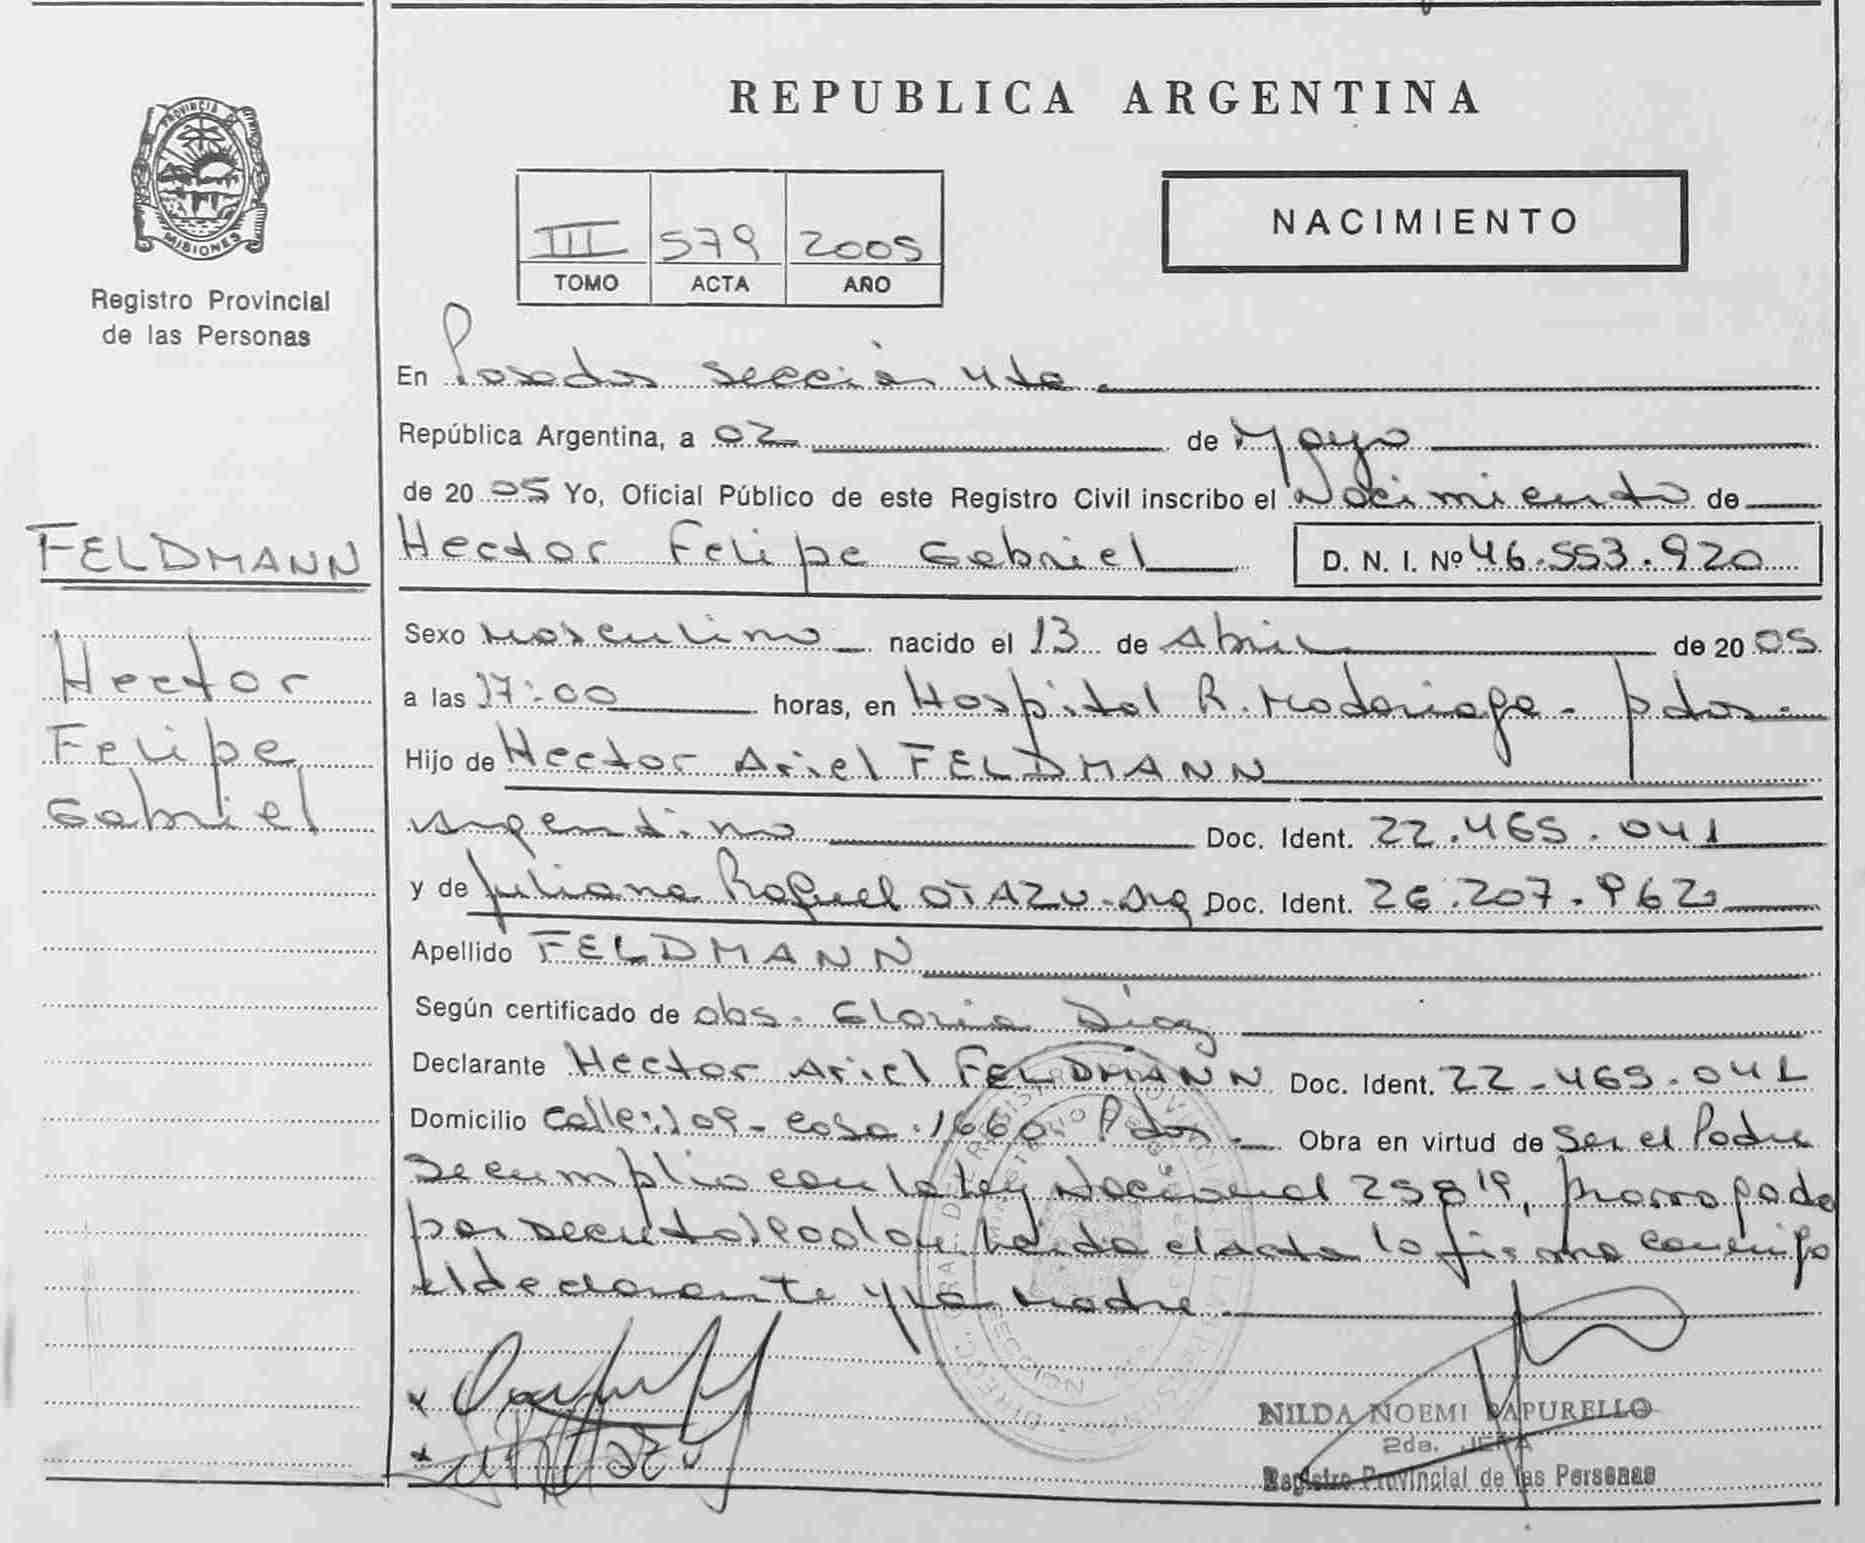 REPUBLICA ARGENTINA
PROVINCIA DE
MISIONES
Registro Provincial
de las Personas
III 579 2005
TOMO ACTA AÑO
NACIMIENTO
En Posadas sección 4ta
República Argentina, a 02 de Mayo
de 2005 Yo, Oficial Público de este Registro Civil inscribo el Nacimiento de
Hector Felipe Gabriel D. N. I. Nº 46.553.920
FELDMANN
Hector
Felipe
Gabriel
Sexo Masculino nacido el 13 de Abril de 2005
a las 17:00 horas, en Hospital R. Madariaga - Pdas.-
Hijo de Hector Ariel FELDMANN
argentino Doc. Ident. 22.465.041
y de Juliana Raquel OTAZU - Arg Doc. Ident. 26.207.962
Apellido FELDMANN
Según certificado de obs. Gloria Diaz
Declarante Hector Ariel FELDMANN Doc. Ident. 22.465.041
Domicilio Calle: 109 - casa. 1660 Pdas.- Obra en virtud de ser el Padre
Se cumplio con la ley Nacional 25819,
por Leida el acta la firma conmigo
el declarante y la Madre
NILDA NOEMI PAPURELLO
2da. JEFA
Registro Provincial de las Personas